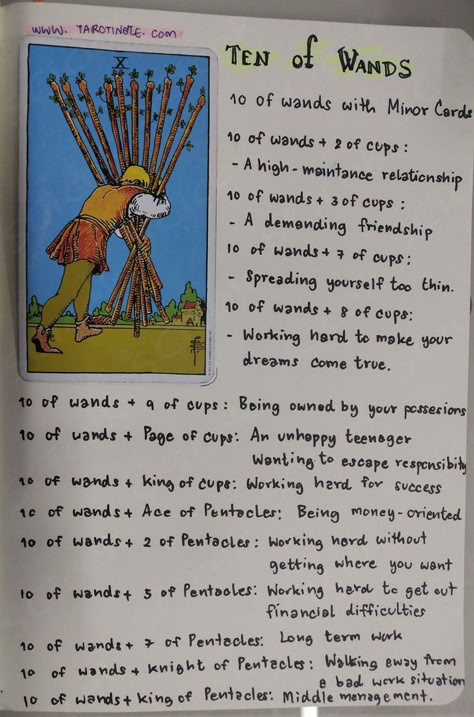 WWW. TAROTINOTE. COM
TEN of WANDS
X
10 of wands with Minor Cards
10 of wands + 2 of cups:
- A high-maintance relationship
10 of wands + 3 of cups:
- A demanding friendship
10 of wands + 7 of cups:
- Spreading yourself too thin.
10 of wands + 8 of cups:
- Working hard to make your
dreams come true.
10 of wands + 9 of cups: Being owned by your possesions
10 of wands + Page of cups: An unhappy teenager
Wanting to escape responsibity
10 of wands + King of cups: Working hard for success
10 of wands + Ace of Pentacles: Being money-oriented
10 of wands + 2 of Pentacles: Working hard without
getting where you want
10 of wands + 5 of Pentacles: Working hard to get out
financial difficulties
10 of wands + 7 of Pentacles: Long term work
10 of wands + knight of Pentacles: Walking away from
a bad work situation
10 of wands + king of Pentacles: Middle management.